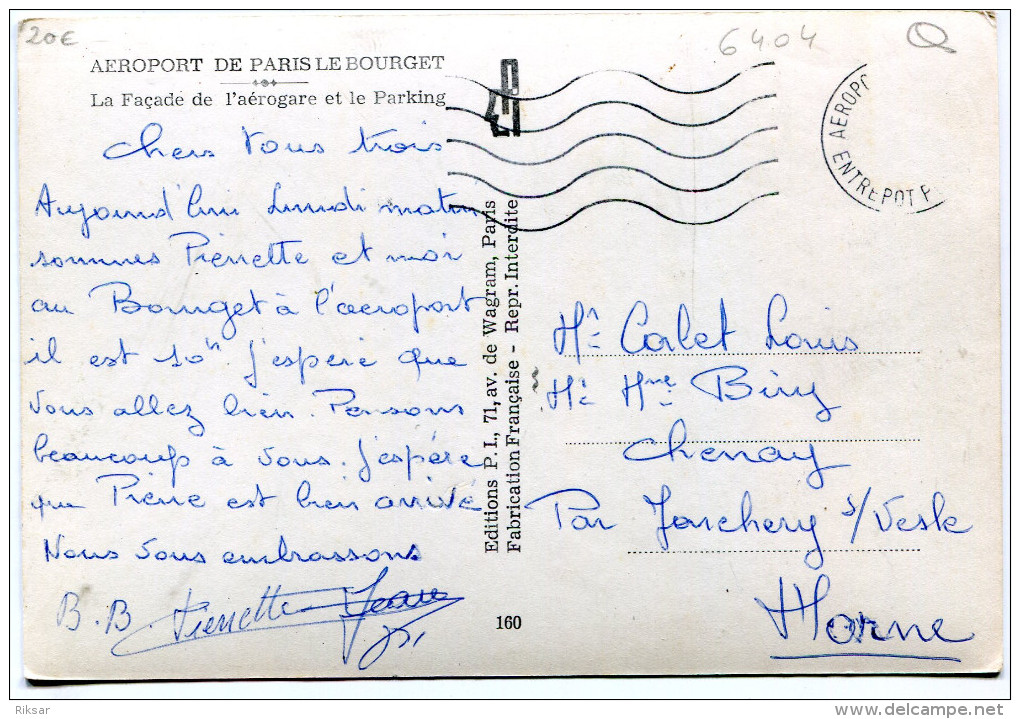 20€
6404
AEROPORT DE PARIS LE BOURGET
La Façade de l'aérogare et le Parking
Chers Vous trois
Aujourd'hui Lundi matin
sommes Pierrette et moi
au Bourget à l'aéroport
il est 10H. J'espère que
vous allez bien. Pensons
beaucoup à vous. J'espère
que Pierre est bien arrivé
Nous vous embrassons
B.B. Pierrette
Editions P.I., 71, av. de Wagram, Paris
Fabrication Française - Repr. Interdite
160
AEROPO
ENTREPOT P
Mr Calet Louis
Mr Mme Biry
Chenay
Par Jonchery s/Vesle
Marne
Riksar
delcampe.net